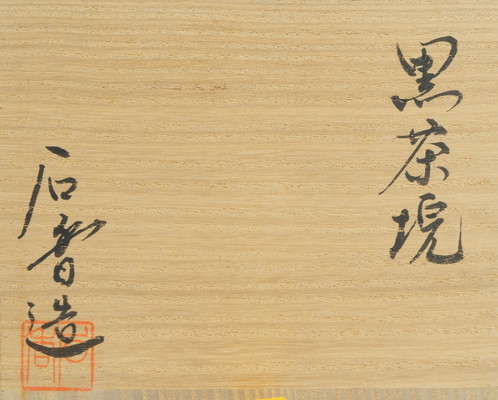 黒茶垸
石香造